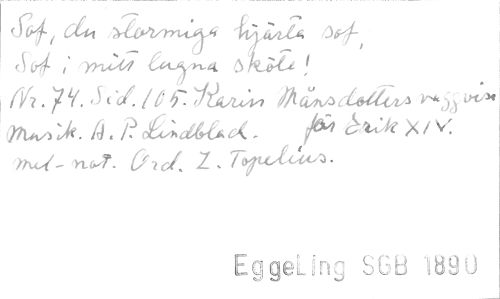 Sof, du stormiga hjärta sof,
Sof i mitt lugna sköte!
Nr. 74. Sid. 105. Karin Månsdotters vaggvisa
Musik. A. P. Lindblad. för Erik XIV.
mel-not. Ord. Z. Topelius.
EggeLing SGB 1890